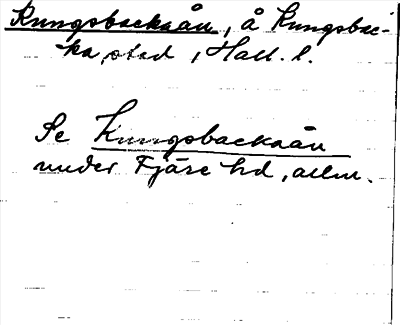 Kungsbackaån, å Kungsbac-
ka, stad, Hall. l.
Se Kungsbackaån
under Fjäre hd, allm.